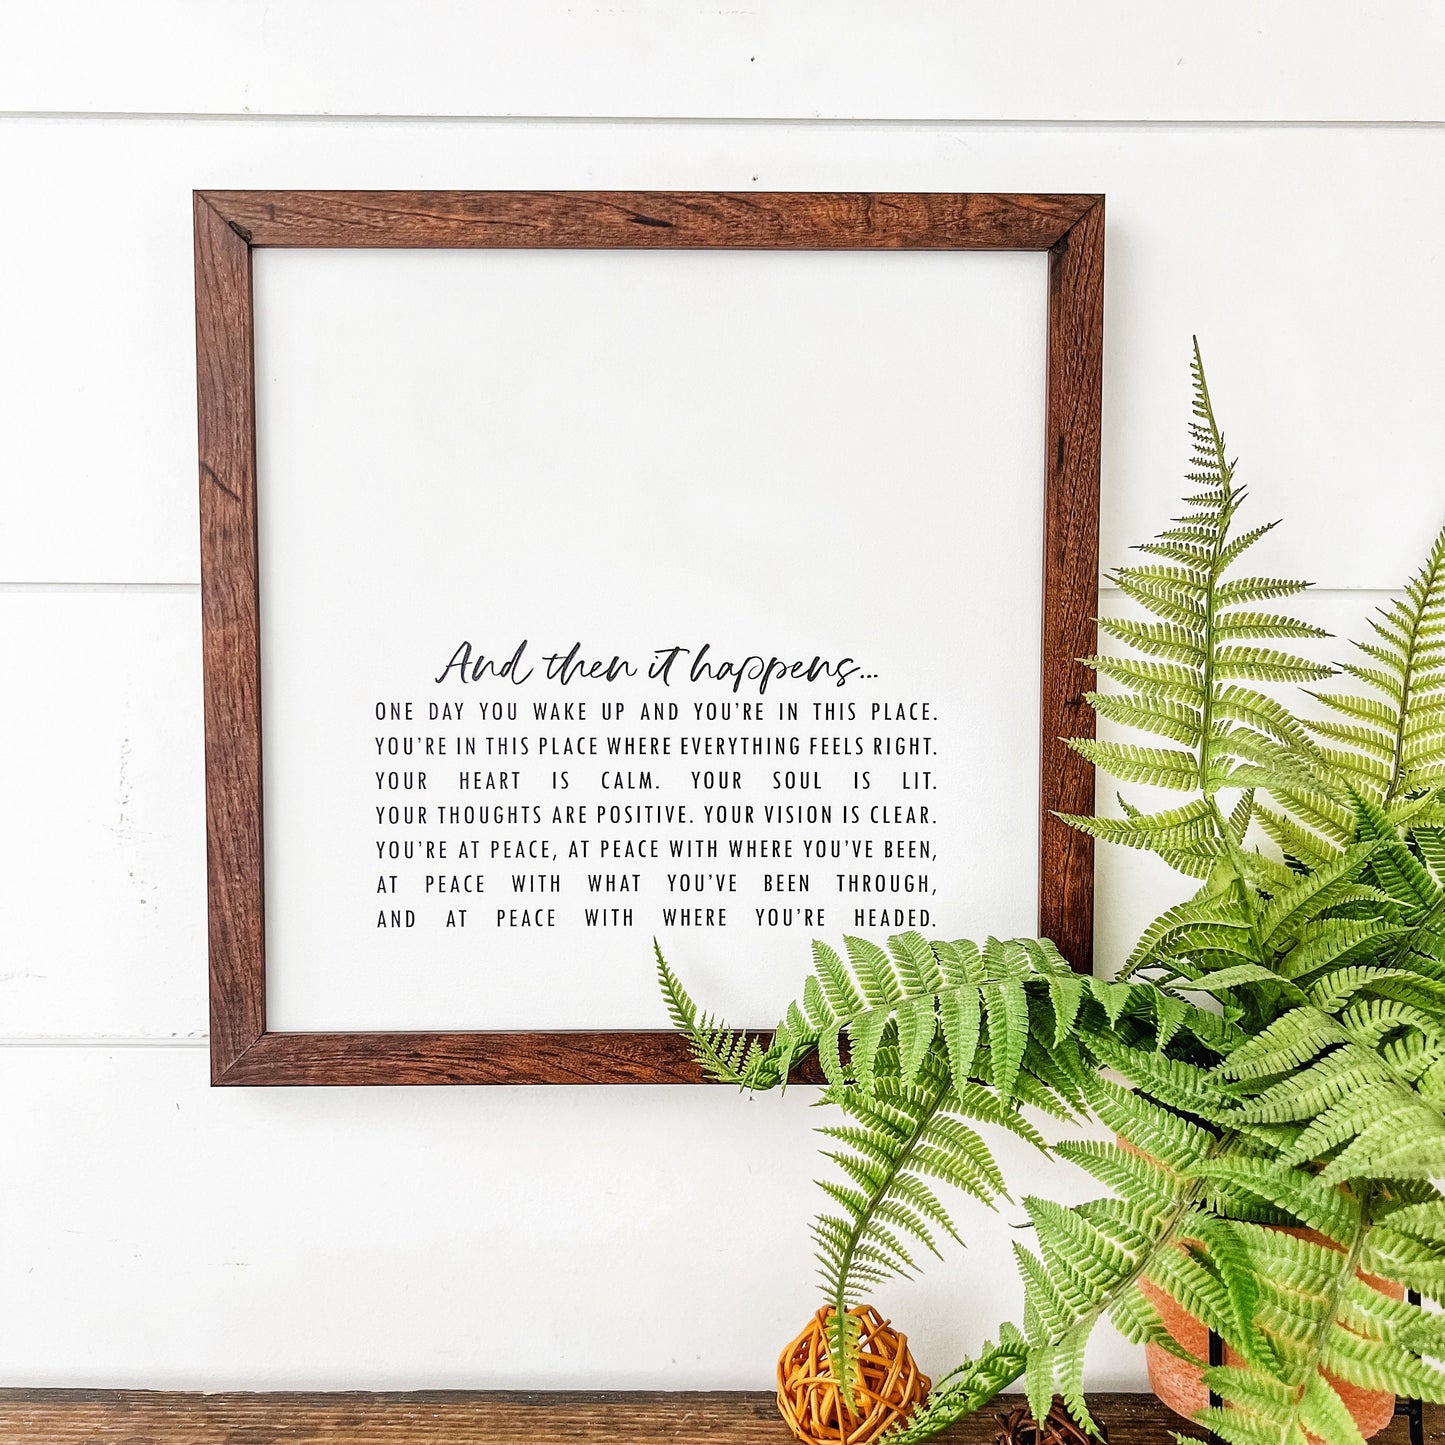 And then it happens...
ONE DAY YOU WAKE UP AND YOU'RE IN THIS PLACE.
YOU'RE IN THIS PLACE WHERE EVERYTHING FEELS RIGHT.
YOUR HEART IS CALM. YOUR SOUL IS LIT.
YOUR THOUGHTS ARE POSITIVE. YOUR VISION IS CLEAR.
YOU'RE AT PEACE, AT PEACE WITH WHERE YOU'VE BEEN,
AT PEACE WITH WHAT YOU'VE BEEN THROUGH,
AND AT PEACE WITH WHERE YOU'RE HEADED.